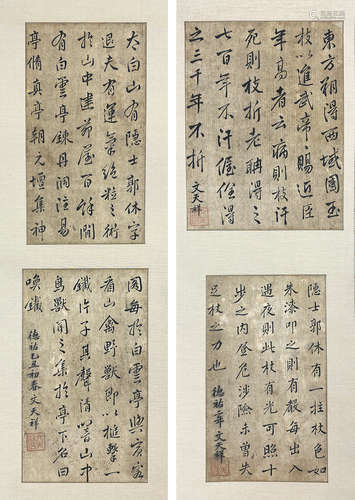 東方朔得西域國玉
枝以進武帝帝賜近臣
年高者云病則枝汗
死則枝折老聃得之
七百年不汗偓佺得
之三千年不折
文天祥
隱士郭休有一拄杖色如
朱漆叩之則有聲每出入
遇夜則此杖有光可照十
步之內登危涉險未嘗失
足杖之力也
德祐二年文天祥
太白山有隱士郭休字
退夫有運氣絕粒之術
於山中建茅屋百餘間
有白雲亭鍊丹洞注易
亭脩真亭朝元壇集神
閣每於白雲亭與賓客
看山禽野獸即以槌擊一
鐵片子其聲清響山中
鳥獸聞之集於亭下名曰
喚鐵
德祐 丑初春文天祥